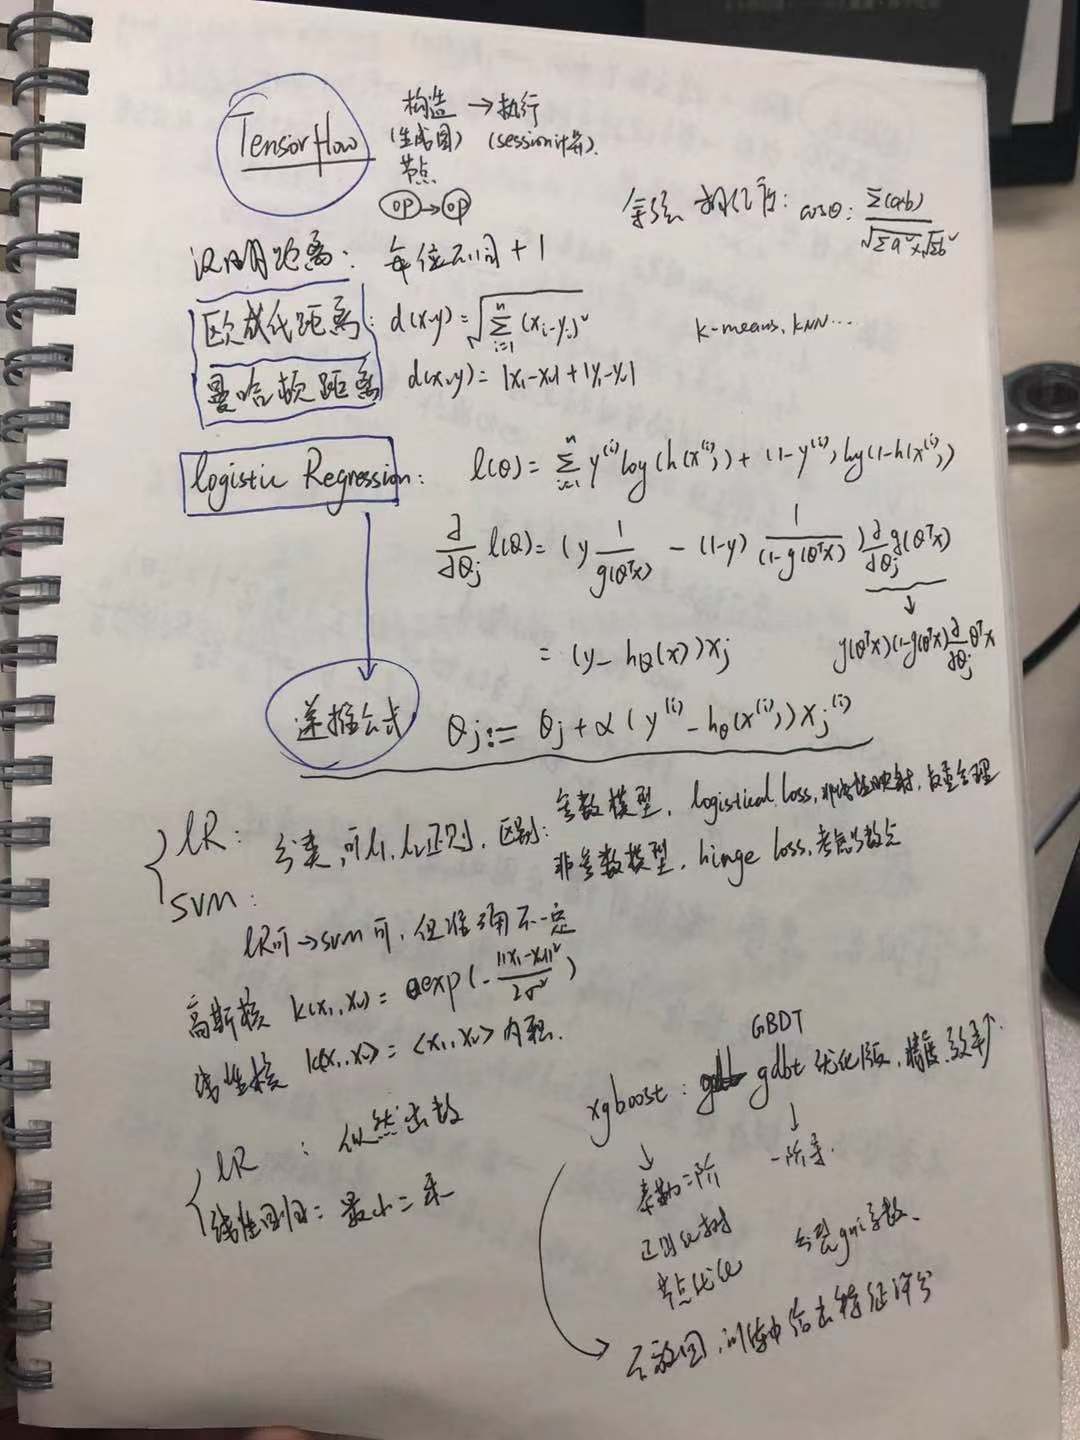 Tensorflow
构造 → 执行
(生成图) (session计算).
节点
op → op
余弦相似度: cosθ: Σ(a·b) / √Σa² × √Σb²
汉明距离: 每位不同 + 1
欧式距离: d(x,y) = √Σ_{i=1}^{n} (xi-yi)²
k-means, kNN...
曼哈顿距离 d(x,y) = |x₁-x₂| + |y₁-y₂|
logistic Regression: l(θ) = Σ_{i=1}^{n} y^(i) log(h(x^(i))) + (1-y^(i)) log(1-h(x^(i)))
∂/∂θj l(θ) = (y 1/g(θᵀx) - (1-y) 1/(1-g(θᵀx))) ∂/∂θj g(θᵀx)
↓
= (y - hθ(x)) xj
g(θᵀx)(1-g(θᵀx)) ∂/∂θj θᵀx
递推公式 θj := θj + α (y^(i) - hθ(x^(i))) xj^(i)
LR: 分类, 可l₁, l₂正则, 区别: 参数模型, logistical loss, 非线性映射,
SVM: 非参数模型, hinge loss, 考虑少数点
LR可 → SVM可, 但准确不一定
高斯核 k(x₁, x₂) = exp(-||x₁-x₂||² / 2σ²)
线性核 k(x₁, x₂) = <x₁, x₂> 内积.
GBDT
xgboost: gdbt 优化版, 精度, 效率↑
LR : 似然函数
线性回归: 最小二乘
↓ ↓
泰勒二阶 一阶导.
正则化树 分裂gini系数、
节点优化
不放回, 训练中给出特征评分